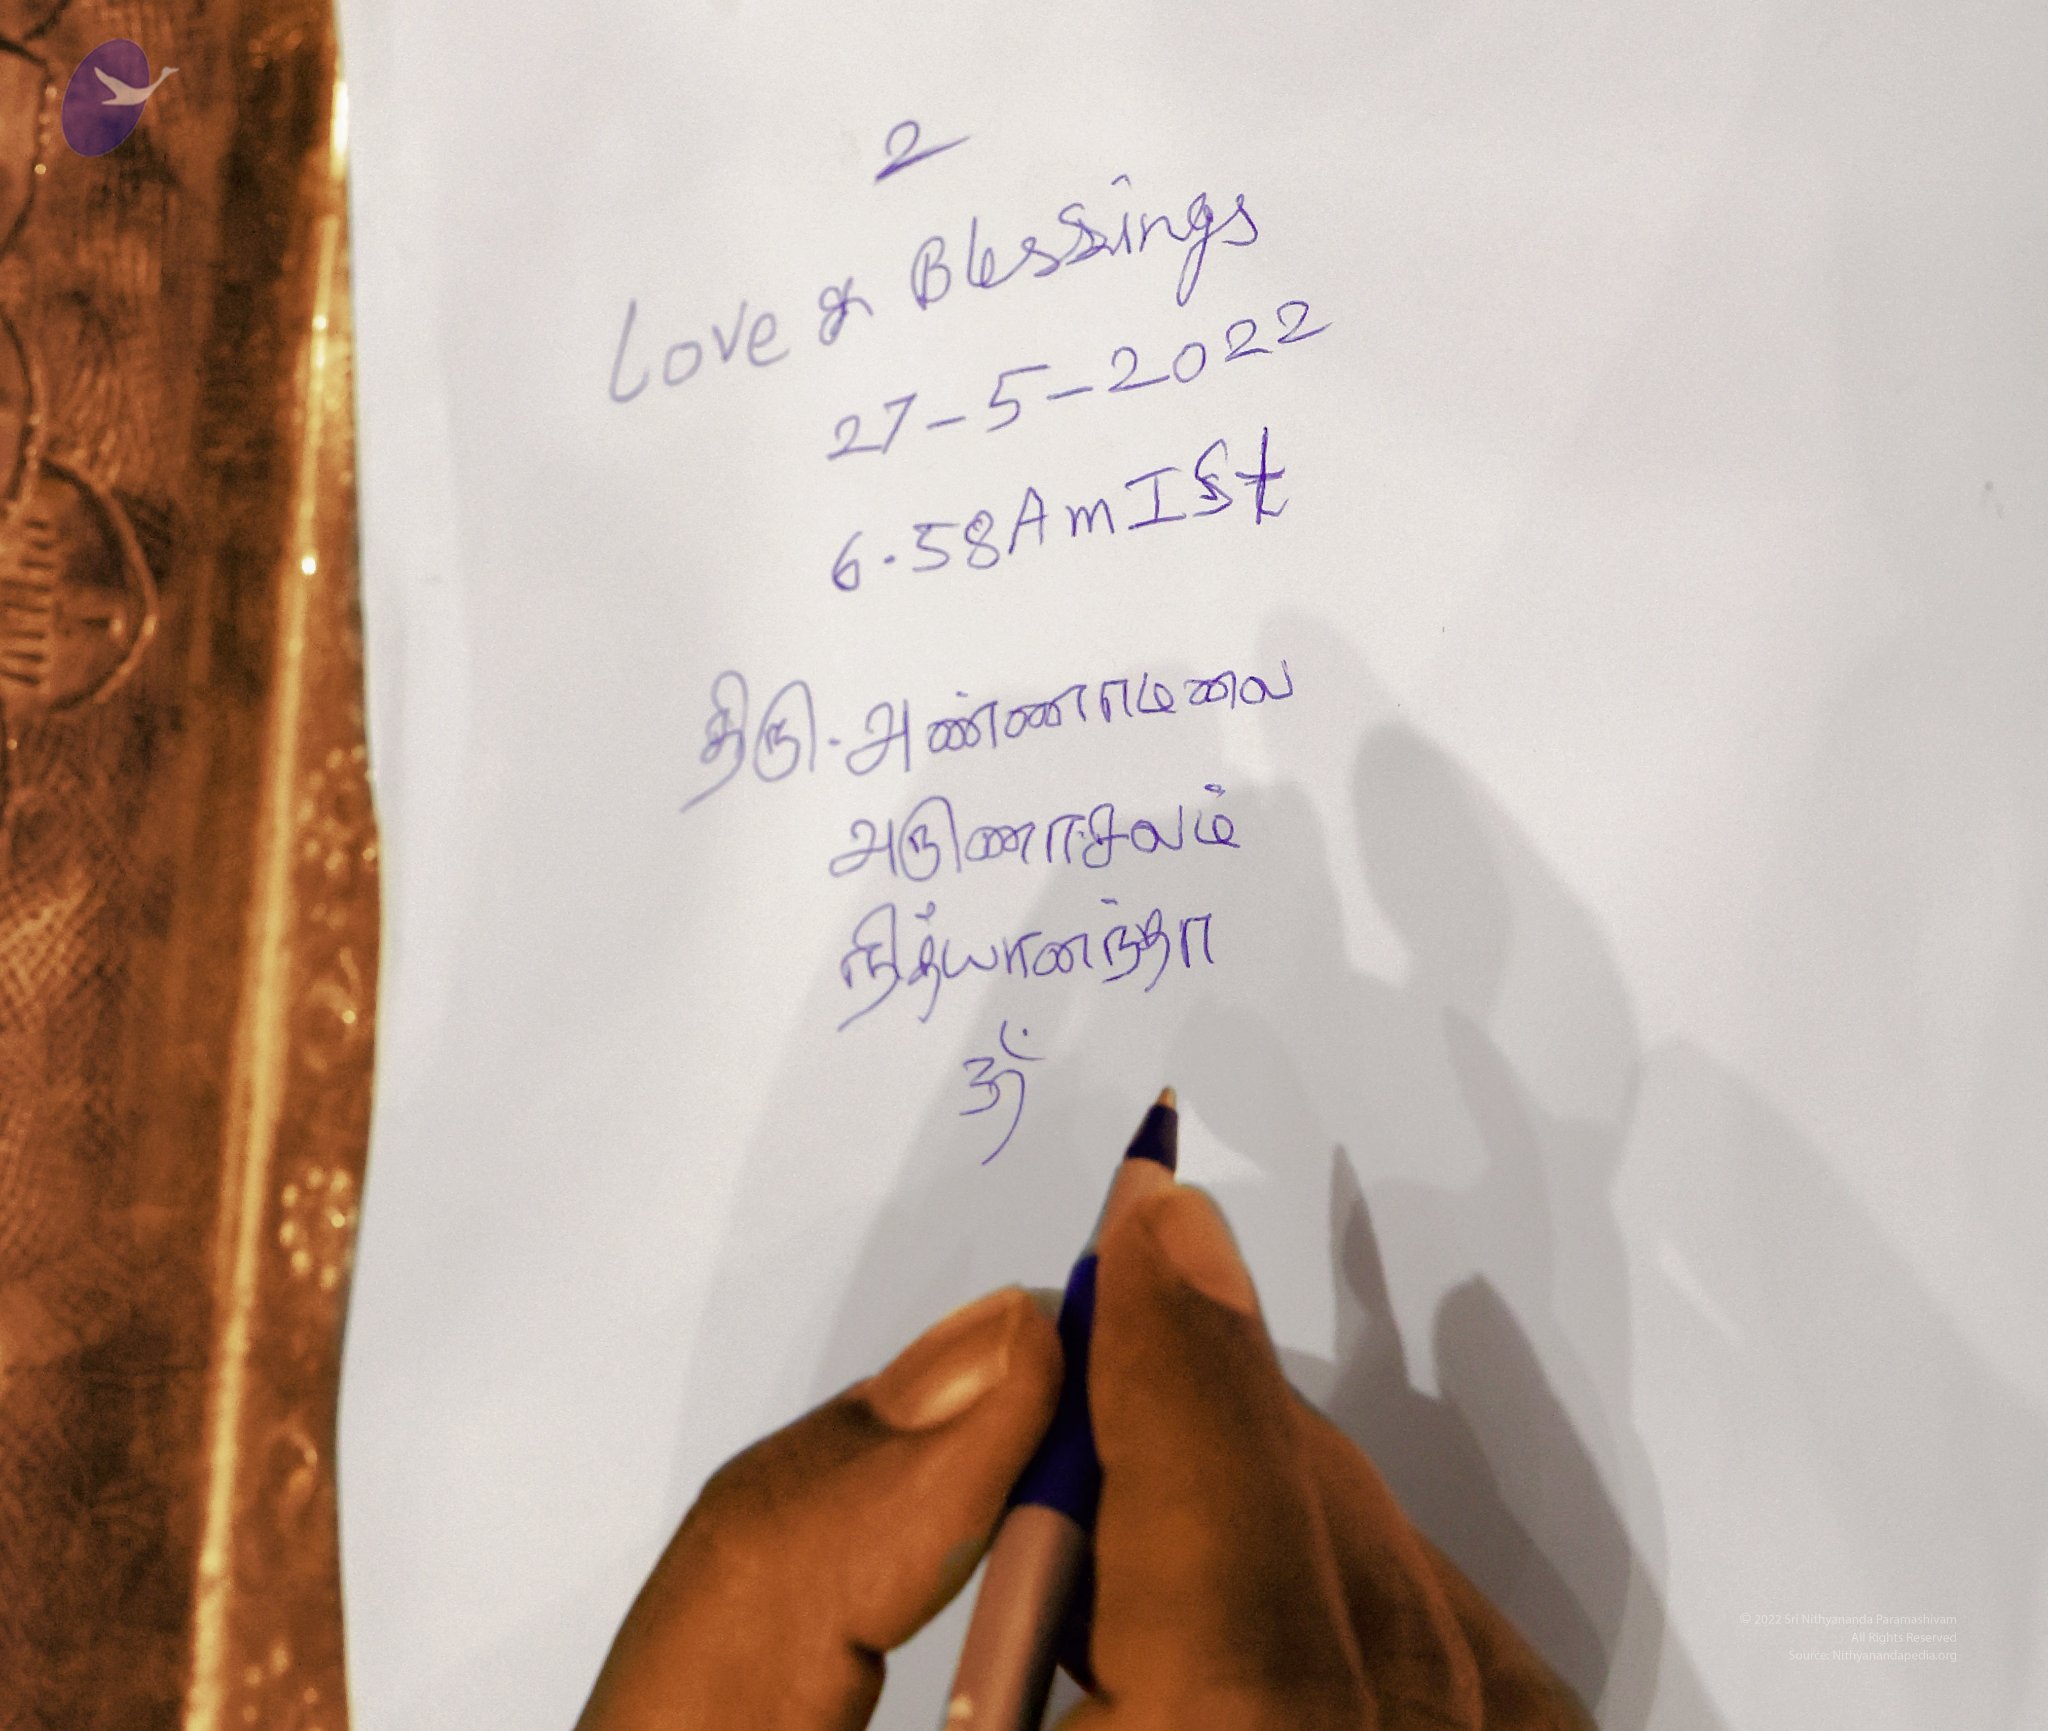 உ
Love & Blessings
27-5-2022
6.58AM ISt
திரு.அண்ணாமலை
அருணாசலம்
நித்யானந்தா
ॐ
© 2022 Sri Nithyananda Paramashivam
All Rights Reserved
Source: Nithyanandapedia.org